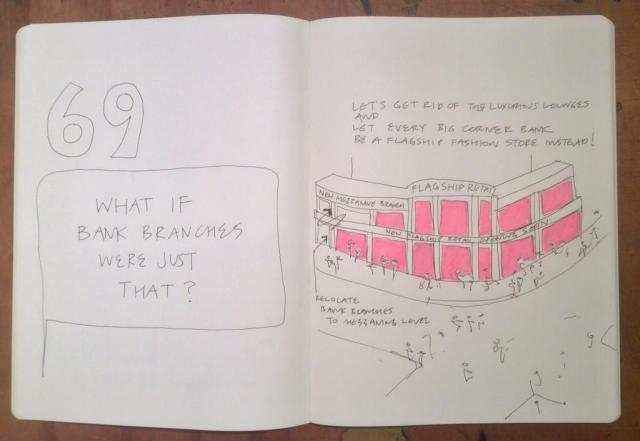 69
WHAT IF
BANK BRANCHES
WERE JUST
THAT?
LET'S GET RID OF THE LUXURIOUS LOUNGES
AND
LET EVERY BIG CORNER BANK
BE A FLAGSHIP FASHION STORE INSTEAD!
FLAGSHIP RETAIL
NEW MEZZANINE BRANCH
NEW FLAGSHIP RETAIL OPENING SOON
RELOCATE
BANK BRANCHES
TO MEZZANINE LEVEL